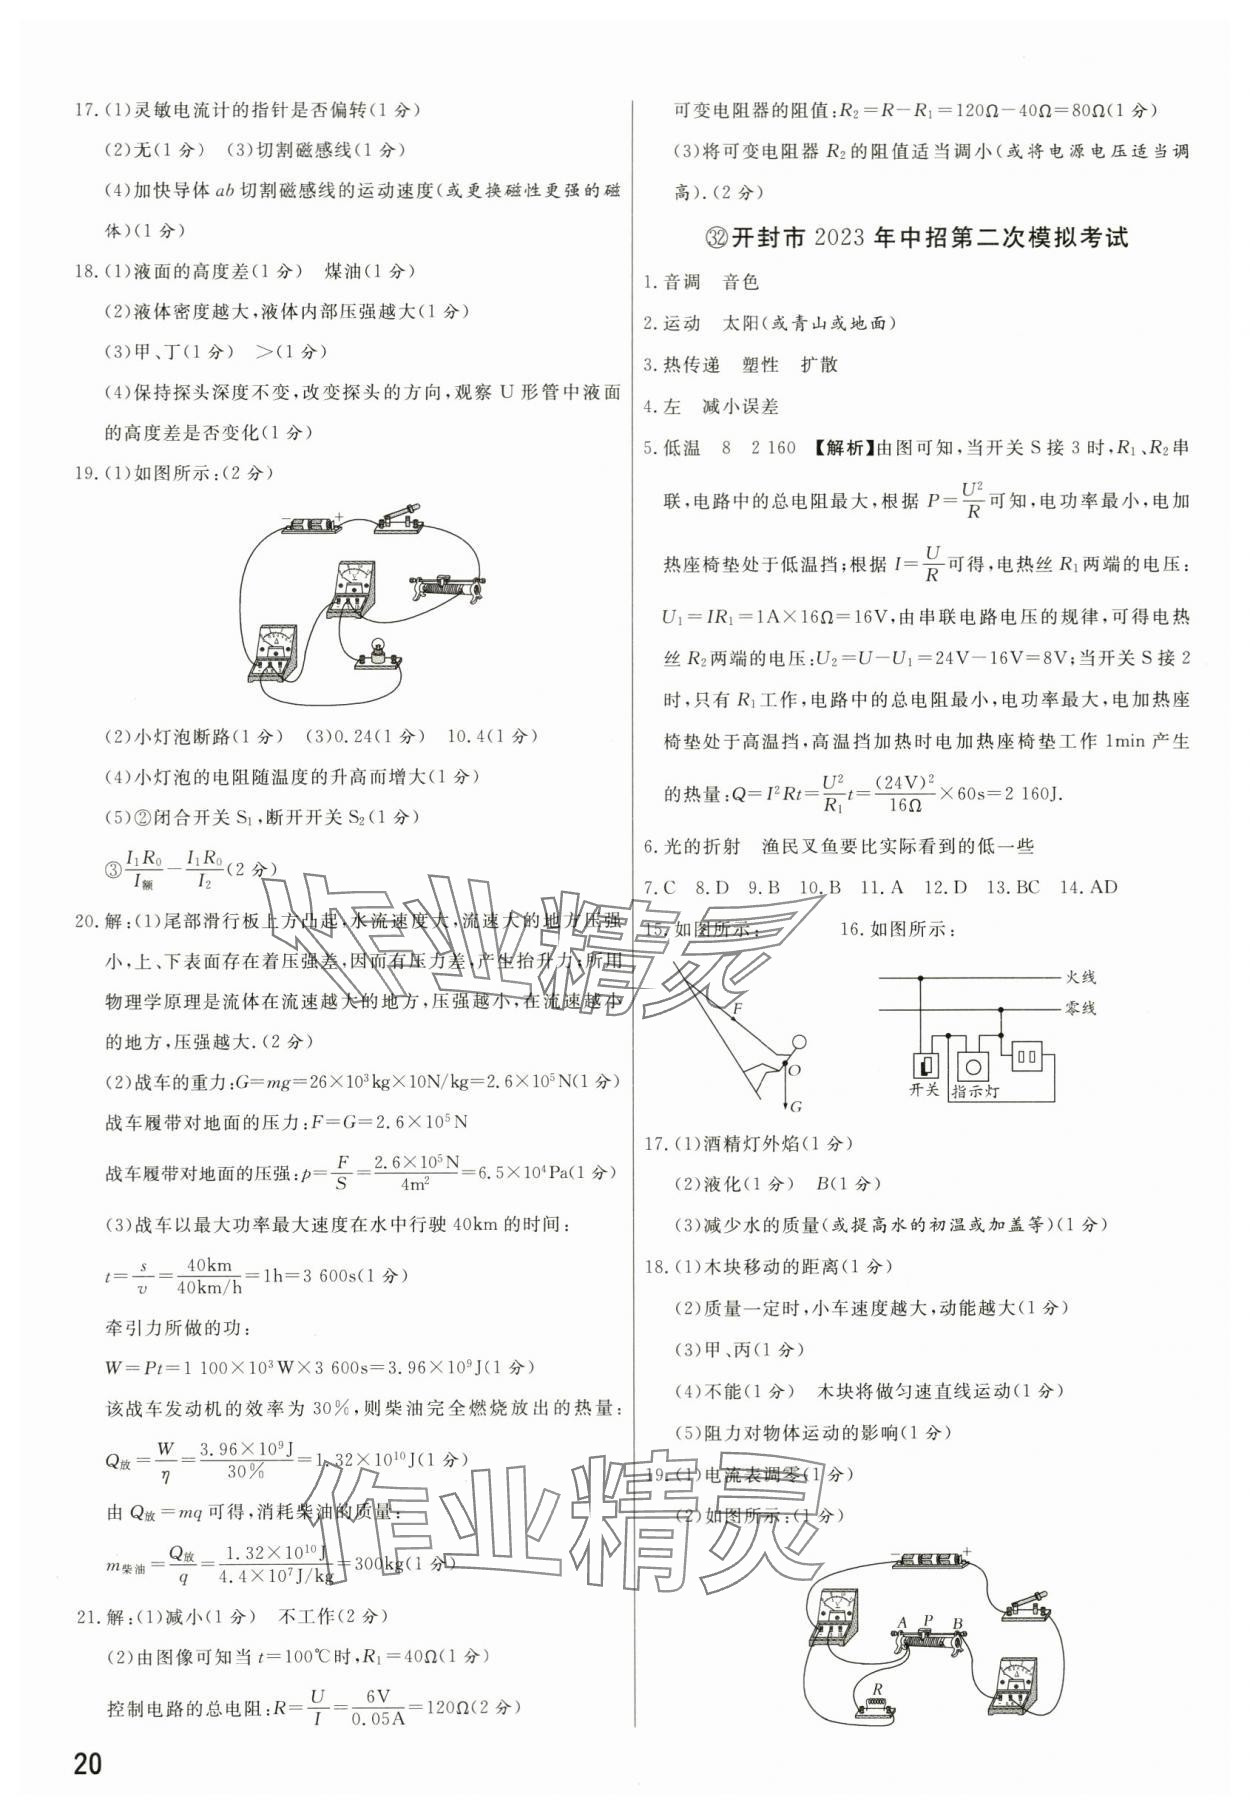 17.(1)灵敏电流计的指针是否偏转(1分)
(2)无(1分) (3)切割磁感线(1分)
(4)加快导体ab切割磁感线的运动速度(或更换磁性更强的磁
体)(1分)
18.(1)液面的高度差(1分) 煤油(1分)
(2)液体密度越大,液体内部压强越大(1分)
(3)甲、丁(1分) >(1分)
(4)保持探头深度不变,改变探头的方向,观察U形管中液面
的高度差是否变化(1分)
19.(1)如图所示:(2分)
− +
V
A
(2)小灯泡断路(1分) (3)0.24(1分) 10.4(1分)
(4)小灯泡的电阻随温度的升高而增大(1分)
(5)②闭合开关S₁,断开开关S₂(1分)
③I₁R₀/I额−I₁R₀/I₂(2分)
20.解:(1)尾部滑行板上方凸起,水流速度大,流速大的地方压强
小,上、下表面存在着压强差,因而有压力差,产生抬升力;所用
物理学原理是流体在流速越大的地方,压强越小,在流速越小
的地方,压强越大.(2分)
(2)战车的重力:G=mg=26×10³kg×10N/kg=2.6×10⁵N(1分)
战车履带对地面的压力:F=G=2.6×10⁵N
战车履带对地面的压强:p=F/S=2.6×10⁵N/4m²=6.5×10⁴Pa(1分)
(3)战车以最大功率最大速度在水中行驶40km的时间:
t=s/v=40km/40km/h=1h=3 600s(1分)
牵引力所做的功:
W=Pt=1 100×10³W×3 600s=3.96×10⁹J(1分)
该战车发动机的效率为30%,则柴油完全燃烧放出的热量:
Q放=W/η=3.96×10⁹J/30%=1.32×10¹⁰J(1分)
由Q放=mq可得,消耗柴油的质量:
m柴油=Q放/q=1.32×10¹⁰J/4.4×10⁷J/kg=300kg(1分)
21.解:(1)减小(1分) 不工作(2分)
(2)由图像可知当t=100℃时,R₁=40Ω(1分)
控制电路的总电阻:R=U/I=6V/0.05A=120Ω(2分)
20
可变电阻器的阻值:R₂=R−R₁=120Ω−40Ω=80Ω(1分)
(3)将可变电阻器R₂的阻值适当调小(或将电源电压适当调
高).(2分)
㉜开封市2023年中招第二次模拟考试
1.音调 音色
2.运动 太阳(或青山或地面)
3.热传递 塑性 扩散
4.左 减小误差
5.低温 8 2 160 【解析】由图可知,当开关S接3时,R₁、R₂串
联,电路中的总电阻最大,根据P=U²/R可知,电功率最小,电加
热座椅垫处于低温挡;根据I=U/R可得,电热丝R₁两端的电压:
U₁=IR₁=1A×16Ω=16V,由串联电路电压的规律,可得电热
丝R₂两端的电压:U₂=U−U₁=24V−16V=8V;当开关S接2
时,只有R₁工作,电路中的总电阻最小,电功率最大,电加热座
椅垫处于高温挡,高温挡加热时电加热座椅垫工作1min产生
的热量:Q=I²Rt=U²/R₁t=(24V)²/16Ω×60s=2 160J.
6.光的折射 渔民叉鱼要比实际看到的低一些
7.C 8.D 9.B 10.B 11.A 12.D 13.BC 14.AD
15.如图所示: 16.如图所示:
F
O
G
火线
零线
开关 指示灯
17.(1)酒精灯外焰(1分)
(2)液化(1分) B(1分)
(3)减少水的质量(或提高水的初温或加盖等)(1分)
18.(1)木块移动的距离(1分)
(2)质量一定时,小车速度越大,动能越大(1分)
(3)甲、丙(1分)
(4)不能(1分) 木块将做匀速直线运动(1分)
(5)阻力对物体运动的影响(1分)
19.(1)电流表调零(1分)
(2)如图所示:(1分)
− +
A P B
R
作业精灵
作业精灵